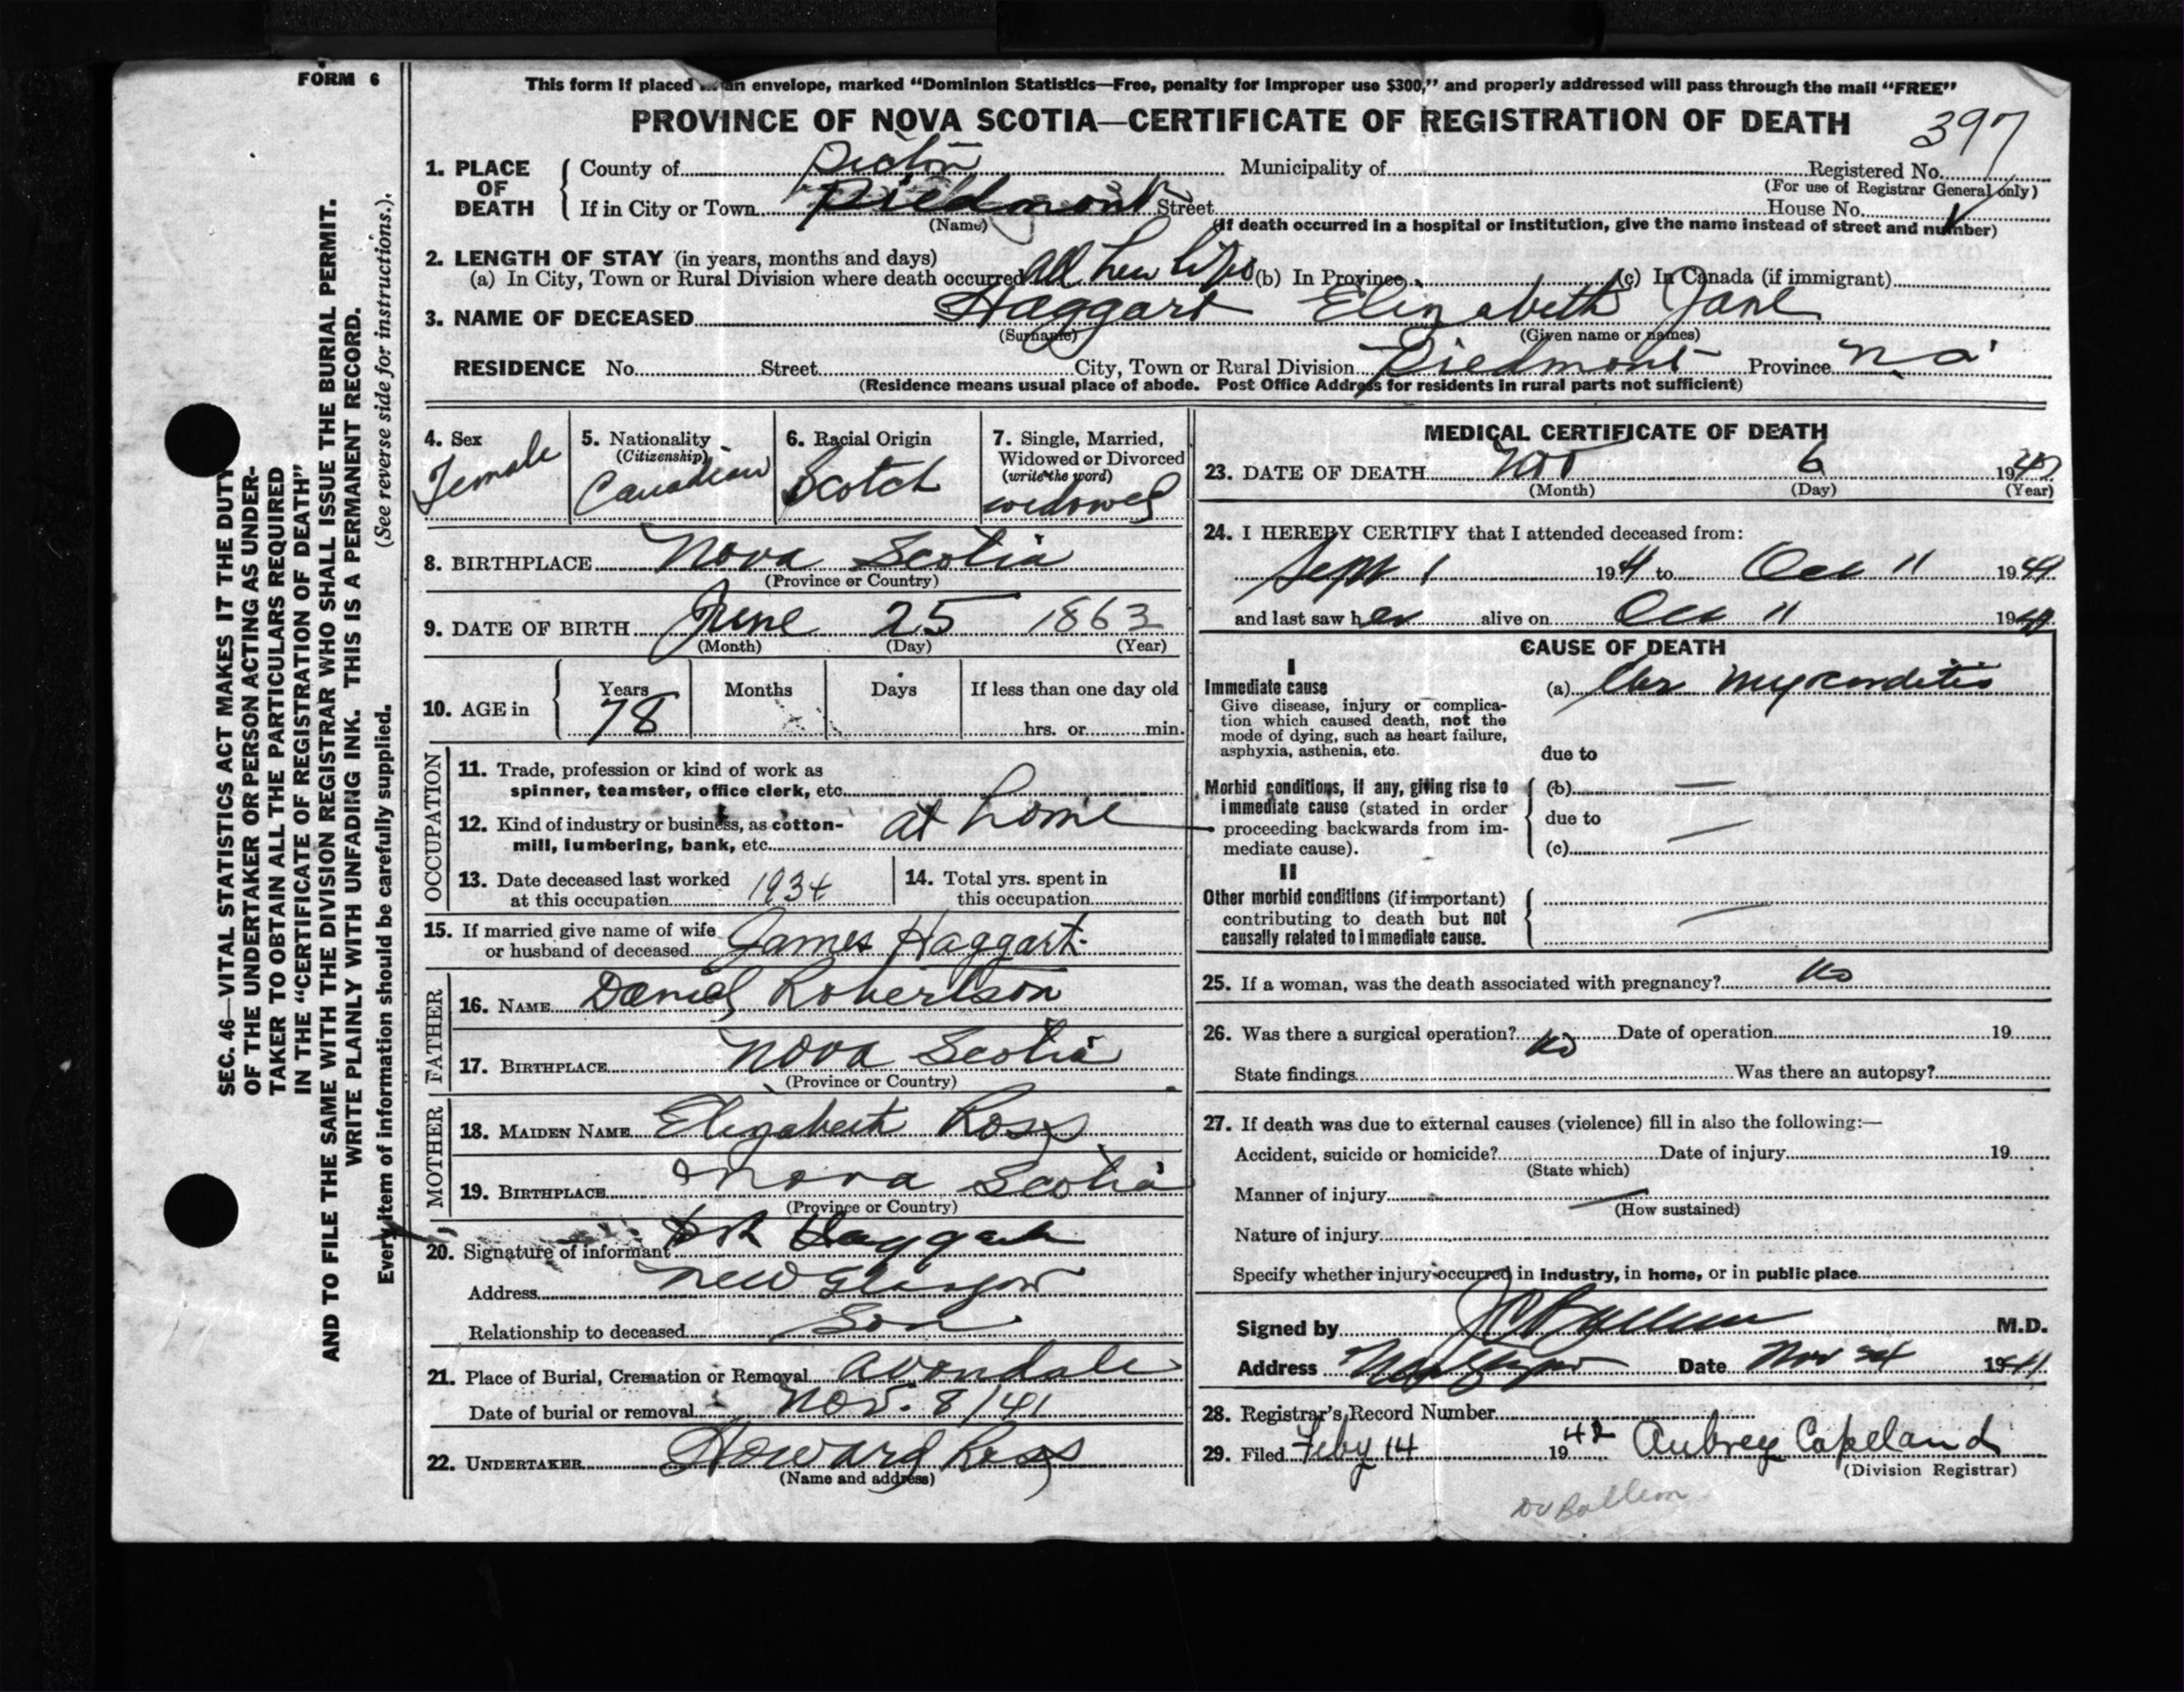 FORM 6
This form if placed in an envelope, marked “Dominion Statistics—Free, penalty for improper use $300,” and properly addressed will pass through the mail “FREE”
PROVINCE OF NOVA SCOTIA—CERTIFICATE OF REGISTRATION OF DEATH
397
1. PLACE OF DEATH County of Pictou Municipality of Registered No.
(For use of Registrar General only)
If in City or Town Piedmont Street House No.
(Name) (If death occurred in a hospital or institution, give the name instead of street and number)
2. LENGTH OF STAY (in years, months and days)
(a) In City, Town or Rural Division where death occurred all her life (b) In Province (c) In Canada (if immigrant)
3. NAME OF DECEASED Haggart Elizabeth Jane
(Surname) (Given name or names)
RESIDENCE No. Street City, Town or Rural Division Piedmont Province
(Residence means usual place of abode. Post Office Address for residents in rural parts not sufficient)
SEC. 46—VITAL STATISTICS ACT MAKES IT THE DUTY
OF THE UNDERTAKER OR PERSON ACTING AS UNDER-
TAKER TO OBTAIN ALL THE PARTICULARS REQUIRED
IN THE “CERTIFICATE OF REGISTRATION OF DEATH”
AND TO FILE THE SAME WITH THE DIVISION REGISTRAR WHO SHALL ISSUE THE BURIAL PERMIT.
WRITE PLAINLY WITH UNFADING INK. THIS IS A PERMANENT RECORD.
Every item of information should be carefully supplied. (See reverse side for instructions.)
4. Sex
Female
5. Nationality
(Citizenship)
Canadian
6. Racial Origin
Scotch
7. Single, Married,
Widowed or Divorced
(write the word)
widowed
8. BIRTHPLACE Nova Scotia
(Province or Country)
9. DATE OF BIRTH June 25 1863
(Month) (Day) (Year)
10. AGE in Years Months Days If less than one day old
78 hrs. or min.
OCCUPATION
11. Trade, profession or kind of work as
spinner, teamster, office clerk, etc.
12. Kind of industry or business, as cotton-
mill, lumbering, bank, etc. at home
13. Date deceased last worked
at this occupation 1934
14. Total yrs. spent in
this occupation
15. If married give name of wife
or husband of deceased James Haggart
FATHER
16. NAME Daniel Robertson
17. BIRTHPLACE Nova Scotia
(Province or Country)
MOTHER
18. MAIDEN NAME Elizabeth Ross
19. BIRTHPLACE Nova Scotia
(Province or Country)
20. Signature of informant Haggart
Address New Glasgow
Relationship to deceased Son
21. Place of Burial, Cremation or Removal Avondale
Date of burial or removal Nov. 8/41
22. UNDERTAKER Howard Ross
(Name and address)
MEDICAL CERTIFICATE OF DEATH
23. DATE OF DEATH Nov 6 19
(Month) (Day) (Year)
24. I HEREBY CERTIFY that I attended deceased from:
Sept 1 194 to Oct 11 19
and last saw her alive on Oct 11 19
CAUSE OF DEATH
I
Immediate cause
Give disease, injury or complica-
tion which caused death, not the
mode of dying, such as heart failure,
asphyxia, asthenia, etc.
(a) Chr myocarditis
due to
Morbid conditions, if any, giving rise to
immediate cause (stated in order
proceeding backwards from im-
mediate cause).
(b) —
due to
(c) —
II
Other morbid conditions (if important)
contributing to death but not
causally related to immediate cause.
25. If a woman, was the death associated with pregnancy? no
26. Was there a surgical operation? no Date of operation 19
State findings Was there an autopsy?
27. If death was due to external causes (violence) fill in also the following:—
Accident, suicide or homicide? Date of injury 19
(State which)
Manner of injury
(How sustained)
Nature of injury
Specify whether injury occurred in industry, in home, or in public place
Signed by M.D.
Address New Glasgow Date Nov 24 1941
28. Registrar's Record Number
29. Filed Feby 14 1942 Aubrey Copeland
(Division Registrar)
Dr Ballem